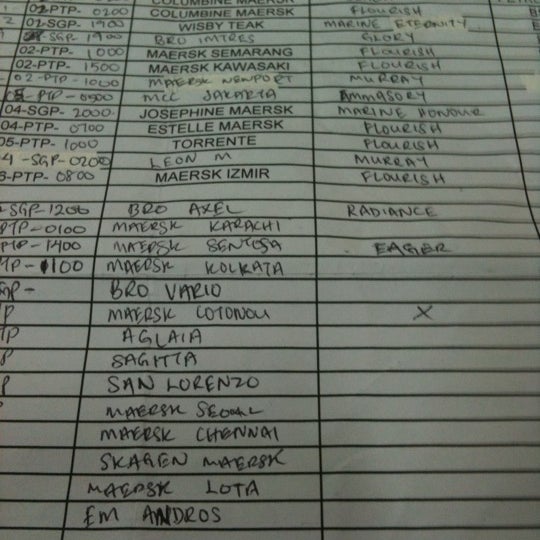 COLUMBINE MAERSK
02-PTP- 0200 COLUMBINE MAERSK FLOURISH
2 01-SGP- 1900 WISBY TEAK MARINE ETERNITY
SGP- 1900 BRO GLORY
02-PTP- 1000 MAERSK SEMARANG FLOURISH
02-PTP- 1500 MAERSK KAWASAKI FLOURISH
02-PTP- 1000 MAERSK NEWPORT MURRAY
PTP- 0500 MCC JAKARTA AMMASORY
04-SGP- 2000 JOSEPHINE MAERSK MARINE HONOUR
04-PTP- 0700 ESTELLE MAERSK FLOURISH
05-PTP- 1000 TORRENTE FLOURISH
4 -SGP- 0200 LEON M MURRAY
PTP- 0800 MAERSK IZMIR FLOURISH
-SGP-1200 BRO AXEL RADIANCE
PTP-0100 MAERSK KARACHI
PTP-1400 MAERSK SENTOSA EAGER
TP-1100 MAERSK KOLKATA
GP- BRO VARIO
P MAERSK COTONOU X
P AGLAIA
P SAGITTA
P SAN LORENZO
MAERSK SEOUL
MAERSK CHENNAI
SKAGEN MAERSK
MAERSK LOTA
EM ANDROS